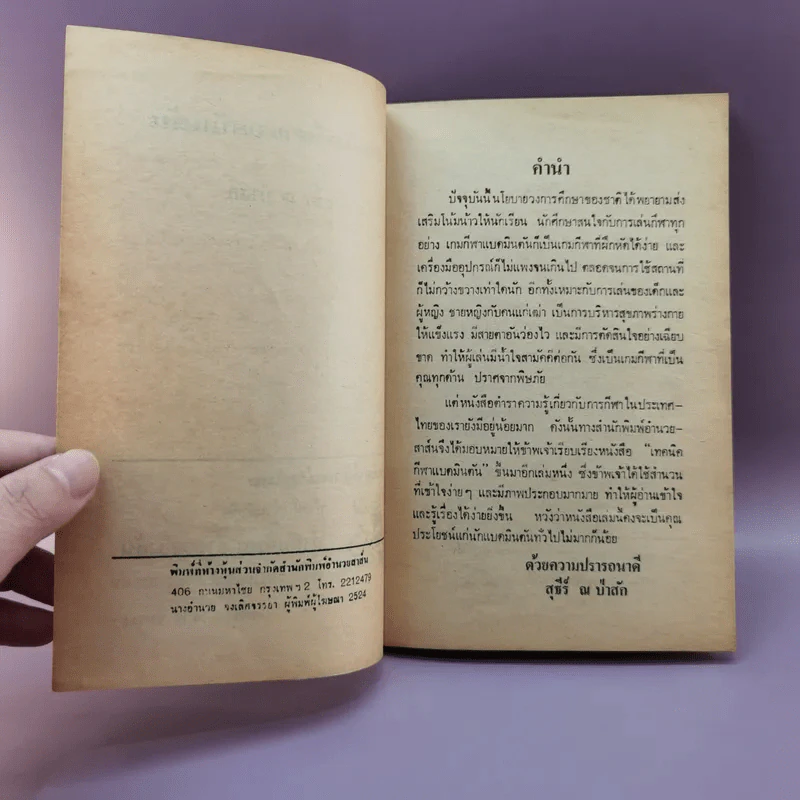 พิมพ์ที่ห้างหุ้นส่วนจำกัดสำนักพิมพ์อำนวยสาส์น
406 ถนนมหาไชย กรุงเทพฯ 2 โทร. 2212479
นางอำนวย จงเลิศจรรยา ผู้พิมพ์ผู้โฆษณา 2524
คำนำ
ปัจจุบันนี้นโยบายวงการศึกษาของชาติได้พยายามส่ง
เสริมโน้มน้าวให้นักเรียน นักศึกษาสนใจกับการเล่นกีฬาทุก
อย่าง เกมกีฬาแบดมินตันก็เป็นเกมกีฬาที่ฝึกหัดได้ง่าย และ
เครื่องมืออุปกรณ์ก็ไม่แพงจนเกินไป ตลอดจนการใช้สถานที่
ก็ไม่กว้างขวางเท่าใดนัก อีกทั้งเหมาะกับการเล่นของเด็กและ
ผู้หญิง ชายหญิงกับคนแก่เฒ่า เป็นการบริหารสุขภาพร่างกาย
ให้แข็งแรง มีสายตาอันว่องไว และมีการตัดสินใจอย่างเฉียบ
ขาด ทำให้ผู้เล่นมีน้ำใจสามัคคีต่อกัน ซึ่งเป็นเกมกีฬาที่เป็น
คุณทุกด้าน ปราศจากพิษภัย
แต่หนังสือตำราความรู้เกี่ยวกับการกีฬาในประเทศ-
ไทยของเรายังมีอยู่น้อยมาก ดังนั้นทางสำนักพิมพ์อำนวย-
สาส์นจึงได้มอบหมายให้ข้าพเจ้าเรียบเรียงหนังสือ "เทคนิค
กีฬาแบดมินตัน" ขึ้นมาอีกเล่มหนึ่ง ซึ่งข้าพเจ้าได้ใช้สำนวน
ที่เข้าใจง่ายๆ และมีภาพประกอบมากมาย ทำให้ผู้อ่านเข้าใจ
และรู้เรื่องได้ง่ายยิ่งขึ้น หวังว่าหนังสือเล่มนี้คงจะเป็นคุณ
ประโยชน์แก่นักแบดมินตันทั่วไปไม่มากก็น้อย
ด้วยความปรารถนาดี
สุธีร์ ณ ป่าสัก